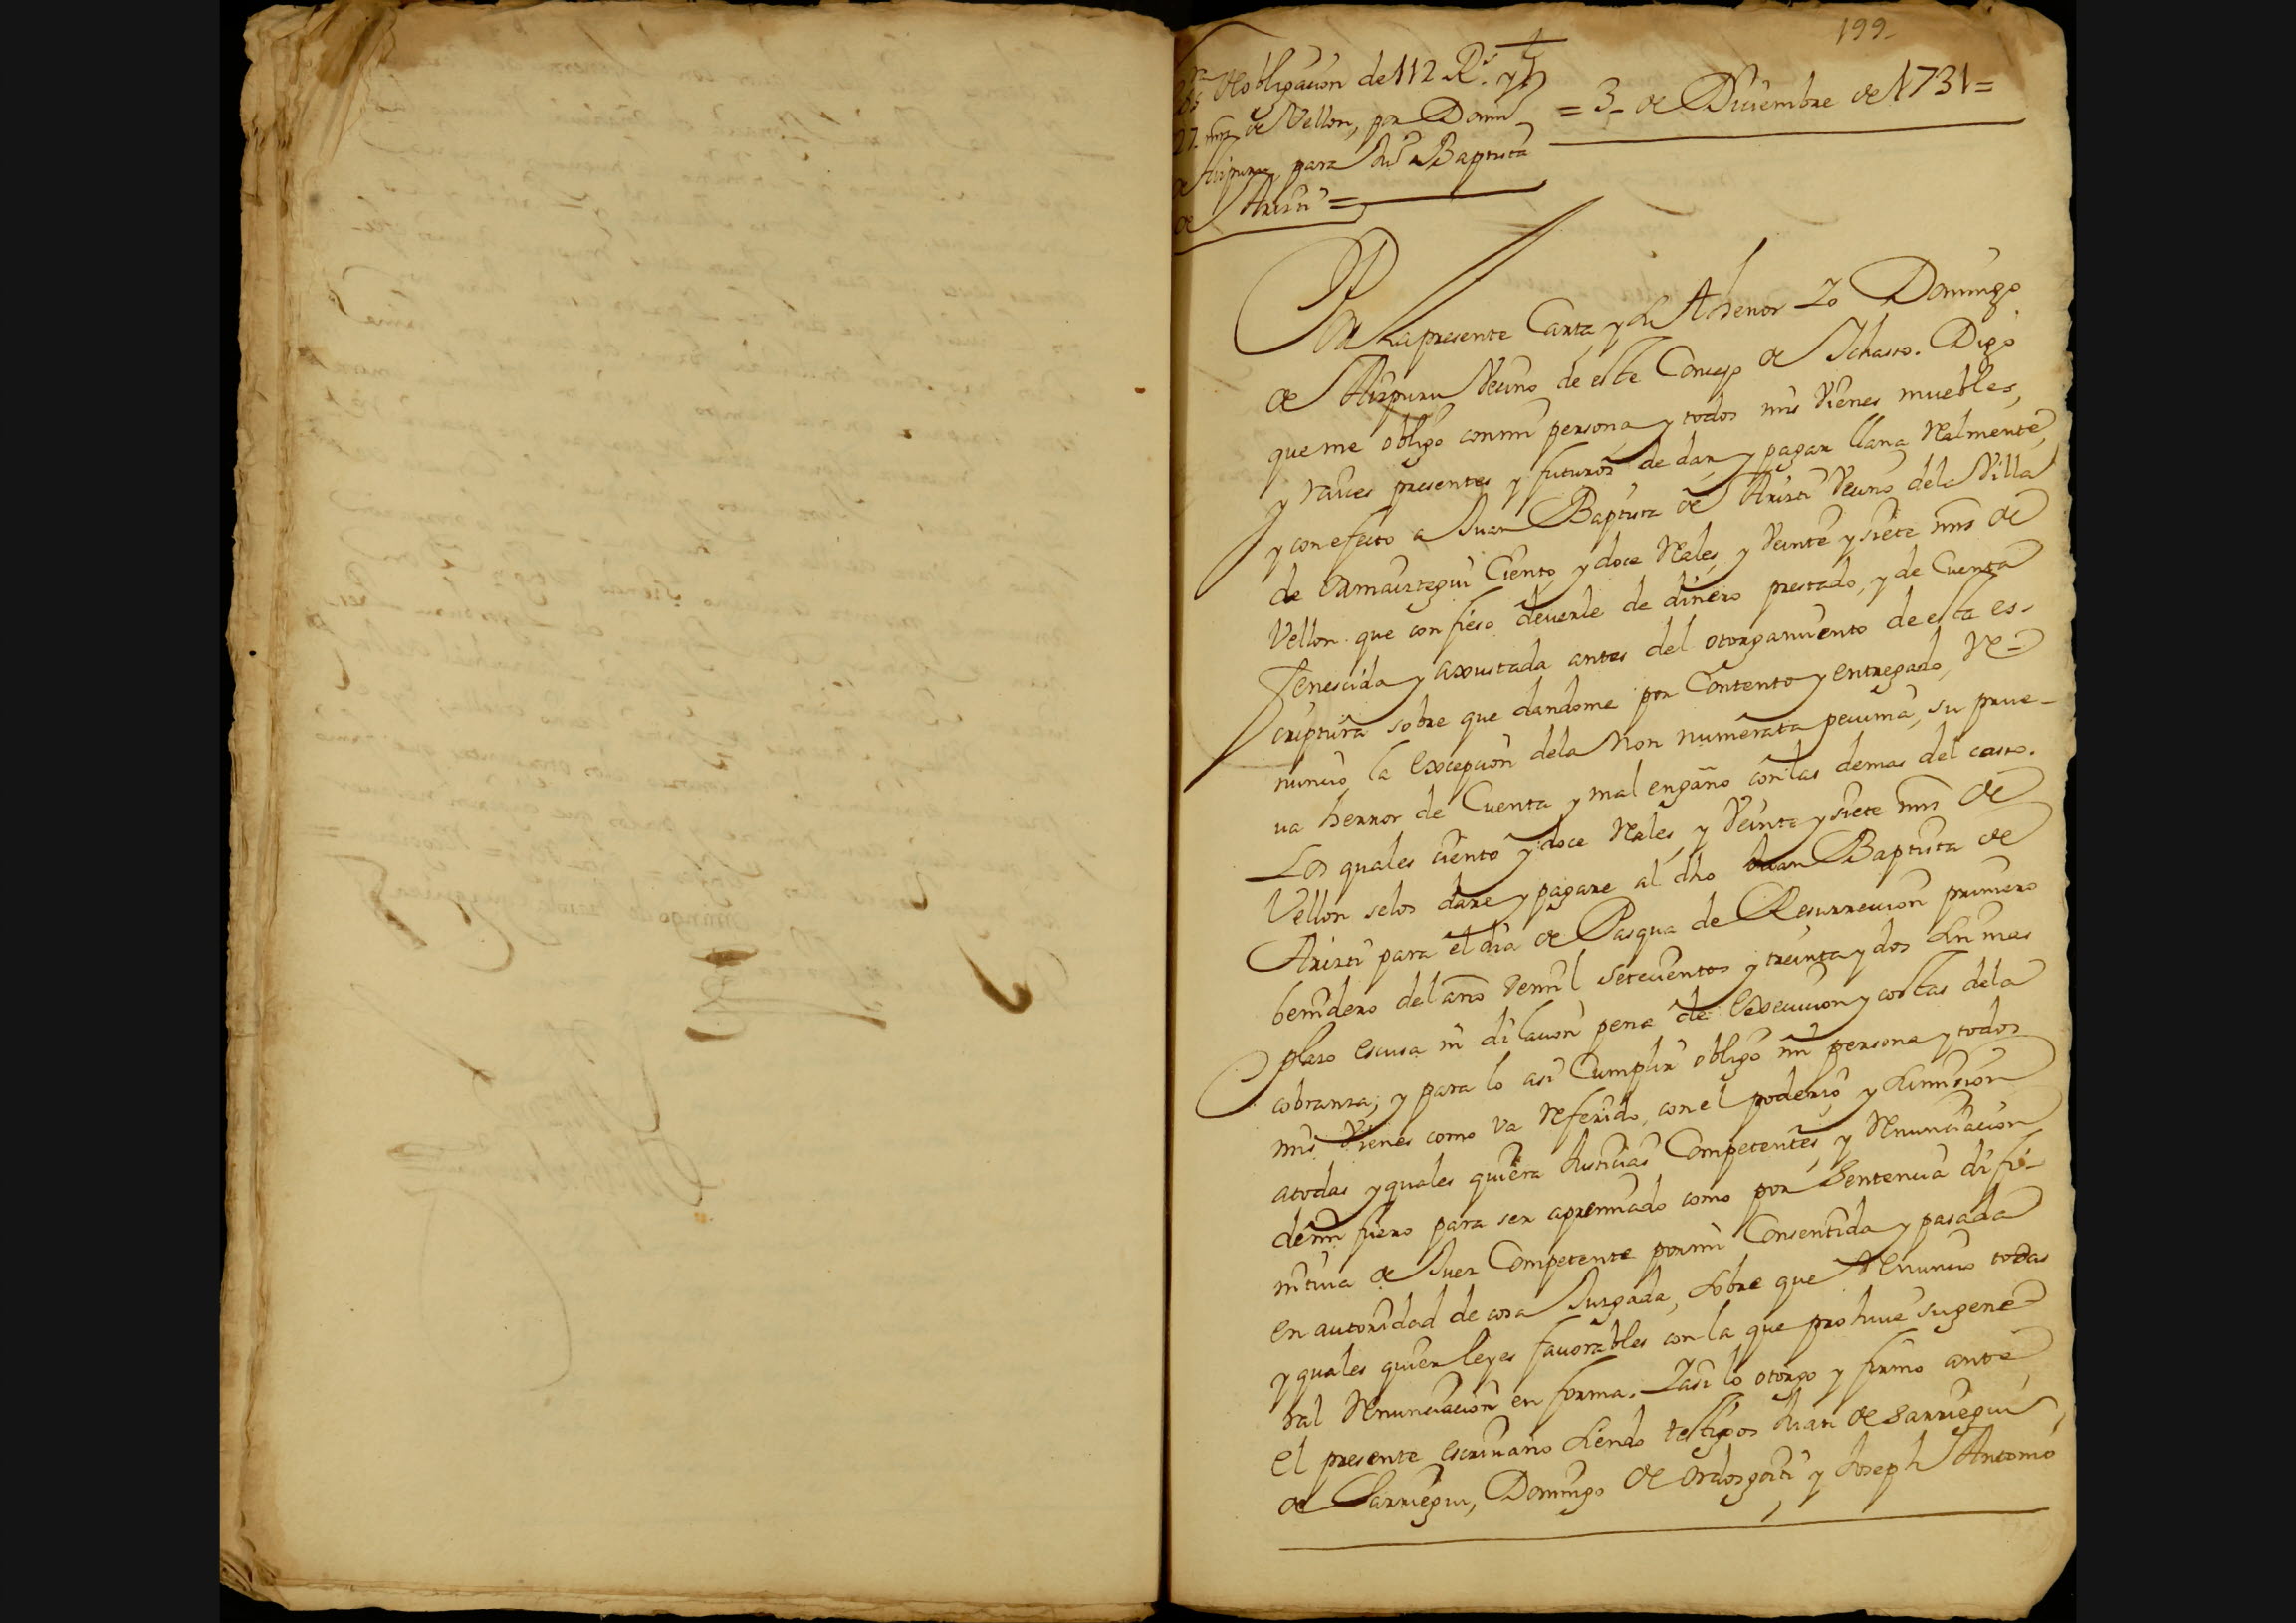 199
Obligacion de 112 R.s y
27 mrs de Vellon, por Domin.
de Aizpuru, para Ju.n Baptista
de Aristi =
= 3 - de Diciembre de 1731 =
Por la presente Carta, y su thenor Yo Domingo
de Aizpuru Vecino de este Concejo de Ichasso. Digo
que me obligo con mi persona, y todos mis vienes muebles,
y raices presentes y futuros de dar, y pagar llana Realmente,
y con efecto a Juan Baptista de Aristi Vecino de la Villa
de Ormaiztegui Ciento y doce Reales, y Veinte y siete mrs de
Vellon que confieso deverle de dinero prestado, y de Cuenta
fenescida y axustada antes del otorgamiento de esta es-
criptura sobre que dandome por Contento y entregado, Re-
nuncio la excepcion de la non numerata pecunia, su prue-
va herror de Cuenta y mal engaño con las demas del casso.
Los quales ciento y doce Reales, y Veinte y siete mrs de
Vellon se los dare y pagare al dho Juan Baptista de
Aristi para el dia de Pasqua de Resurreccion primero
benidero del año de mil Setecientos y treinta y dos sin mas
plazo escusa ni dilacion pena de execucion y costas de la
cobranza; y para lo asi Cumplir obligo mi persona y todos
mis Vienes como va referido, con el poderio y sumision
a todas y quales quiera Justicias Competentes, y Renunciacion
de mi fuero para ser apremiado como por Sentencia difi-
nitiva de Juez Competente por mi Consentida y pasada
en autoridad de cosa Juzgada, sobre que Renuncio todas
y quales quier leyes favorables con la que prohive su gene-
ral Renunciacion en forma. Y asi lo otorgo y firmo ante
el presente escrivano siendo testigos Juan de Sarriegui
de Sarriegui, Domingo de Ordozgoiti y Joseph Antonio